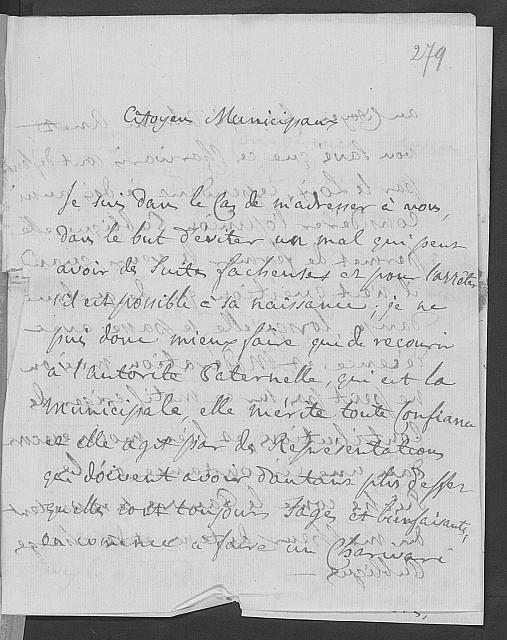 279
Citoyen Municipaux
Je suis dans le Cas de m'adresser à vous,
dans le but d'eviter un mal qui peut
avoir des suites facheuses et pour l'arrêter
s'il est possible a sa naissance ; je ne
puis donc mieux faire que de recourir
à l'autorité Paternelle, qui est la
Municipale, elle merite toute Confiance
et elle agit par des Representations
qui doivent avoir d'autant plus d'effet
qu'elles sont toujours sages et bienfaisantes,
On menace a faire un Charivari
Publique